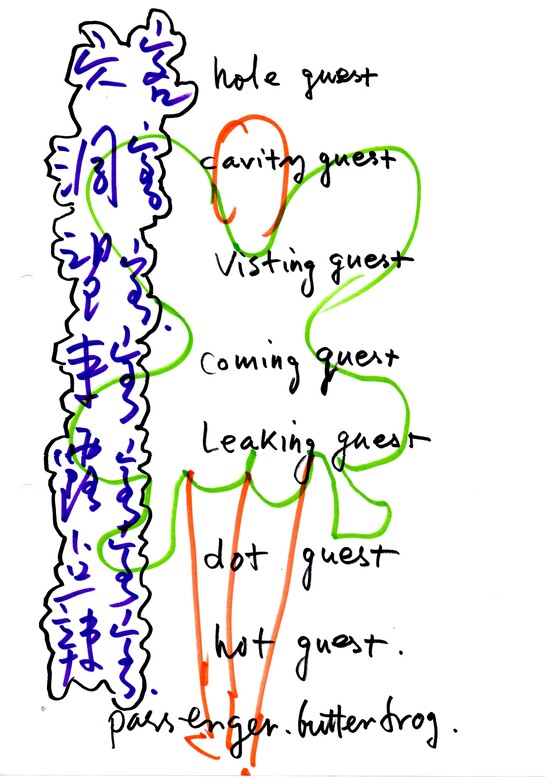 穴客 hole guest
洞客 cavity guest
客 Visting guest
来客 coming guest
客 Leaking guest
客 dot guest
辣客. hot guest.
passenger.butterfrog.